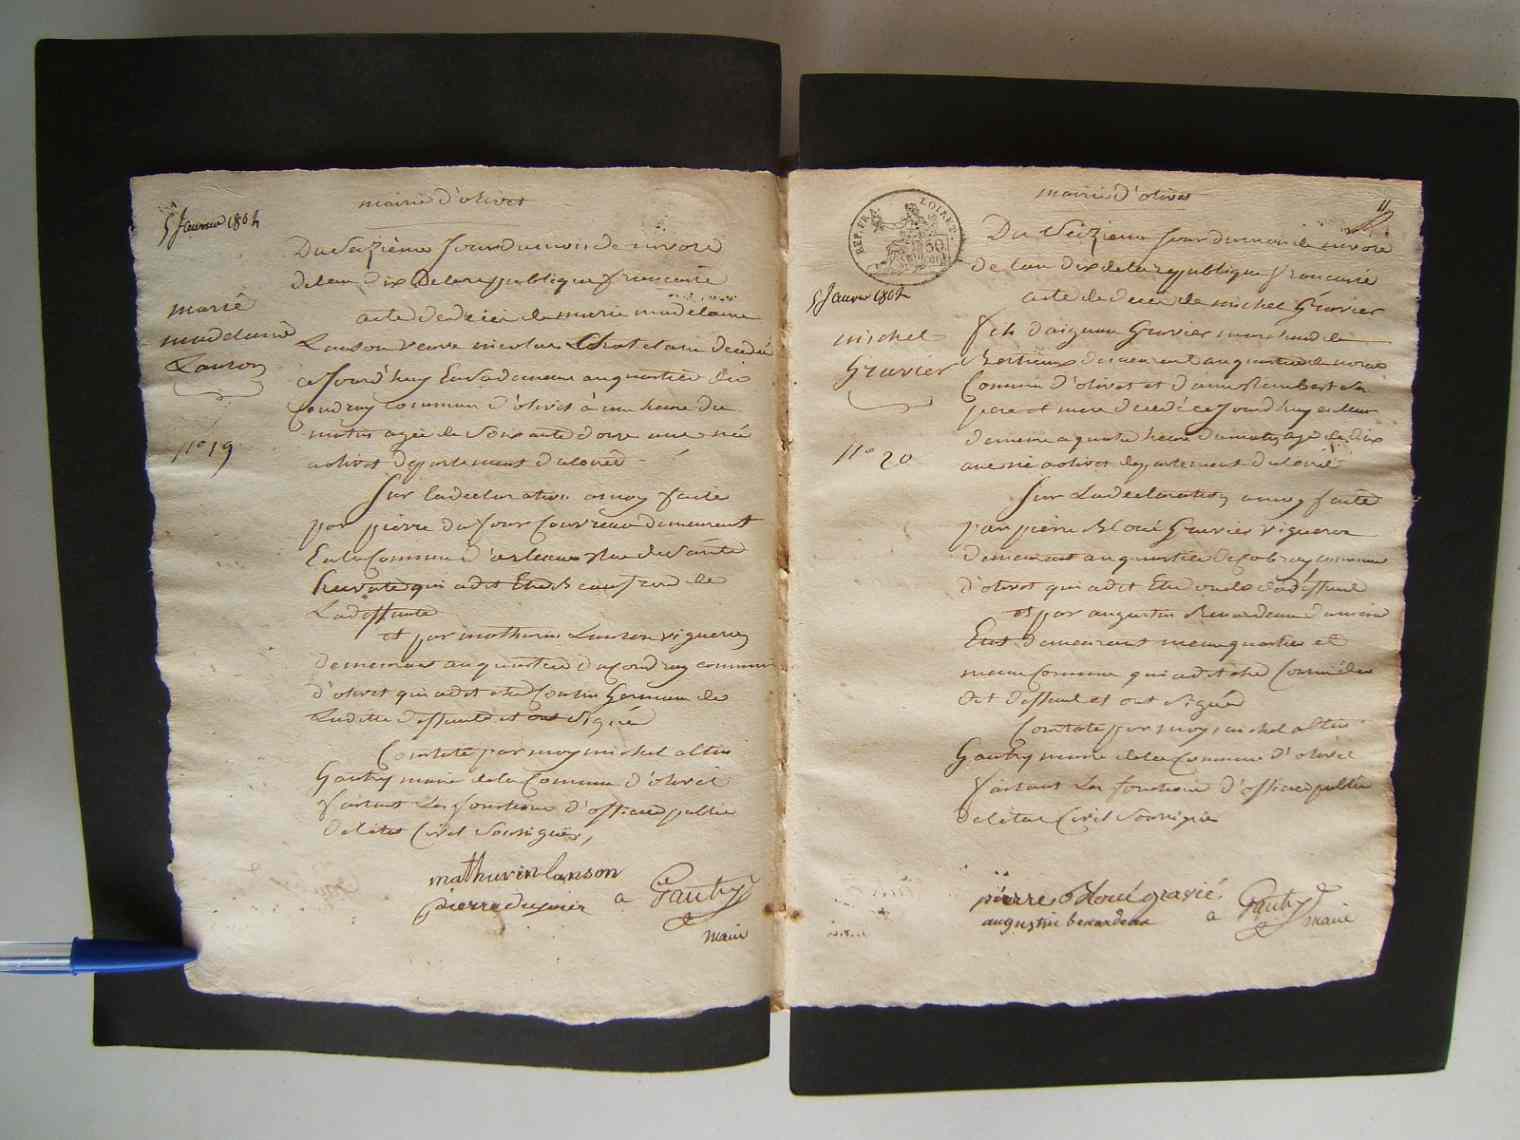 mairie d'olivet
5 Janvier 1802
Du Seizieme Jour du mois de nivose
de lan dix de la republique francaise
marie
madelaine
Lanson
acte de deces de marie madelaine
Lanson veuve nicolas Chatelain decedé
ce Jourd'huy En sa demeure au quartier du
Coudray commune d'olivet à une heure du
matin agée de Soixante onze ans né
n° 19
a olivet departement du loiret
Sur la declaration a moy faite
par pierre du Jour Couvreur demeurant
En la Commune d'orleans Rue de
qui a dit Etre Beaufrere de
La deffunte
et par mathurin Lanson vigneron
demeurant au quartier du Coudray commune
d'olivet qui a dit etre Cousin Germain de
Laditte deffunte et ont signé
Constaté par moy michel altin
Gautry maire de la Commune d'olivet
faisant Les fonctions d'officier public
de letat Civil Soussigné,
mathurin lanson
pierre dujour a Gautry
maire
mairie d'olivet
11
REP. FRA. LOIRET.
50
5 Janvier 1802
Du Seizieme Jour du mois de nivose
de lan dix de la republique francaise
acte de deces de michel Gravier
michel
Gravier
fils d'aignan Gravier marchand de
Bestiaux demeurant au quartier de
Commune d'olivet et d'anne Rambert Sa
pere et mere decedé ce Jourd'huy en leur
demeure a quatre heure du matin agé de dix
n° 20
ans né a olivet departement du loiret
Sur La declaration a moy faite
par pierre Bloué Gravier vigneron
demeurant au quartier de commune
d'olivet qui a dit Etre oncle du deffunt
et par augustin Benardeau
Etat demeurant meme quartier et
meme Commune qui a dit etre Cousin du
dit deffunt et ont signé
Constaté par moy michel altin
Gautry maire de la Commune d'olivet
faisant Les fonctions d'officier public
de letat Civil Soussigné
pierre Bloué gravié
augustin benardeau a Gautry
maire